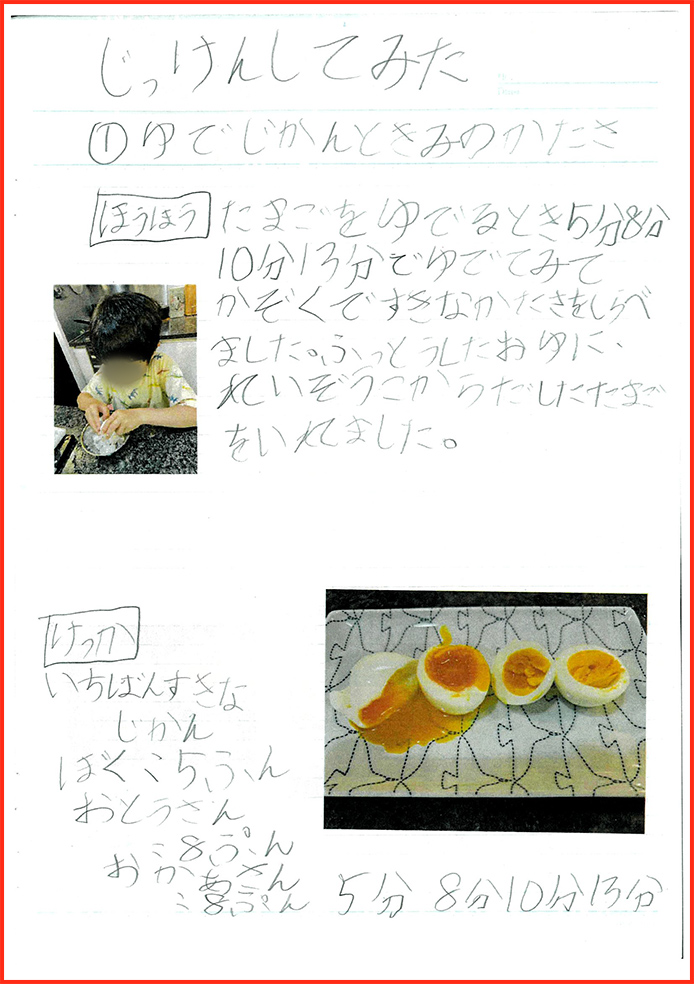 じっけんしてみた
①ゆでじかんときみのかたさ
ほうほう
たまごをゆでるとき5分8分
10分13分でゆでてみて
かぞくですきなかたさをしらべ
ました。ふっとうしたおゆに、
れいぞうこからだしたたまご
をいれてました。
けっか
いちばんすきな
じかん
ぼく:5ふん
おとうさん
:8ぷん
おかあさん
:8ぷん
5分 8分10分13分